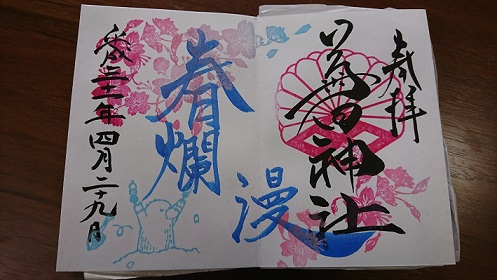 奉拝
神社
春爛漫
平成三十一年四月二十九日